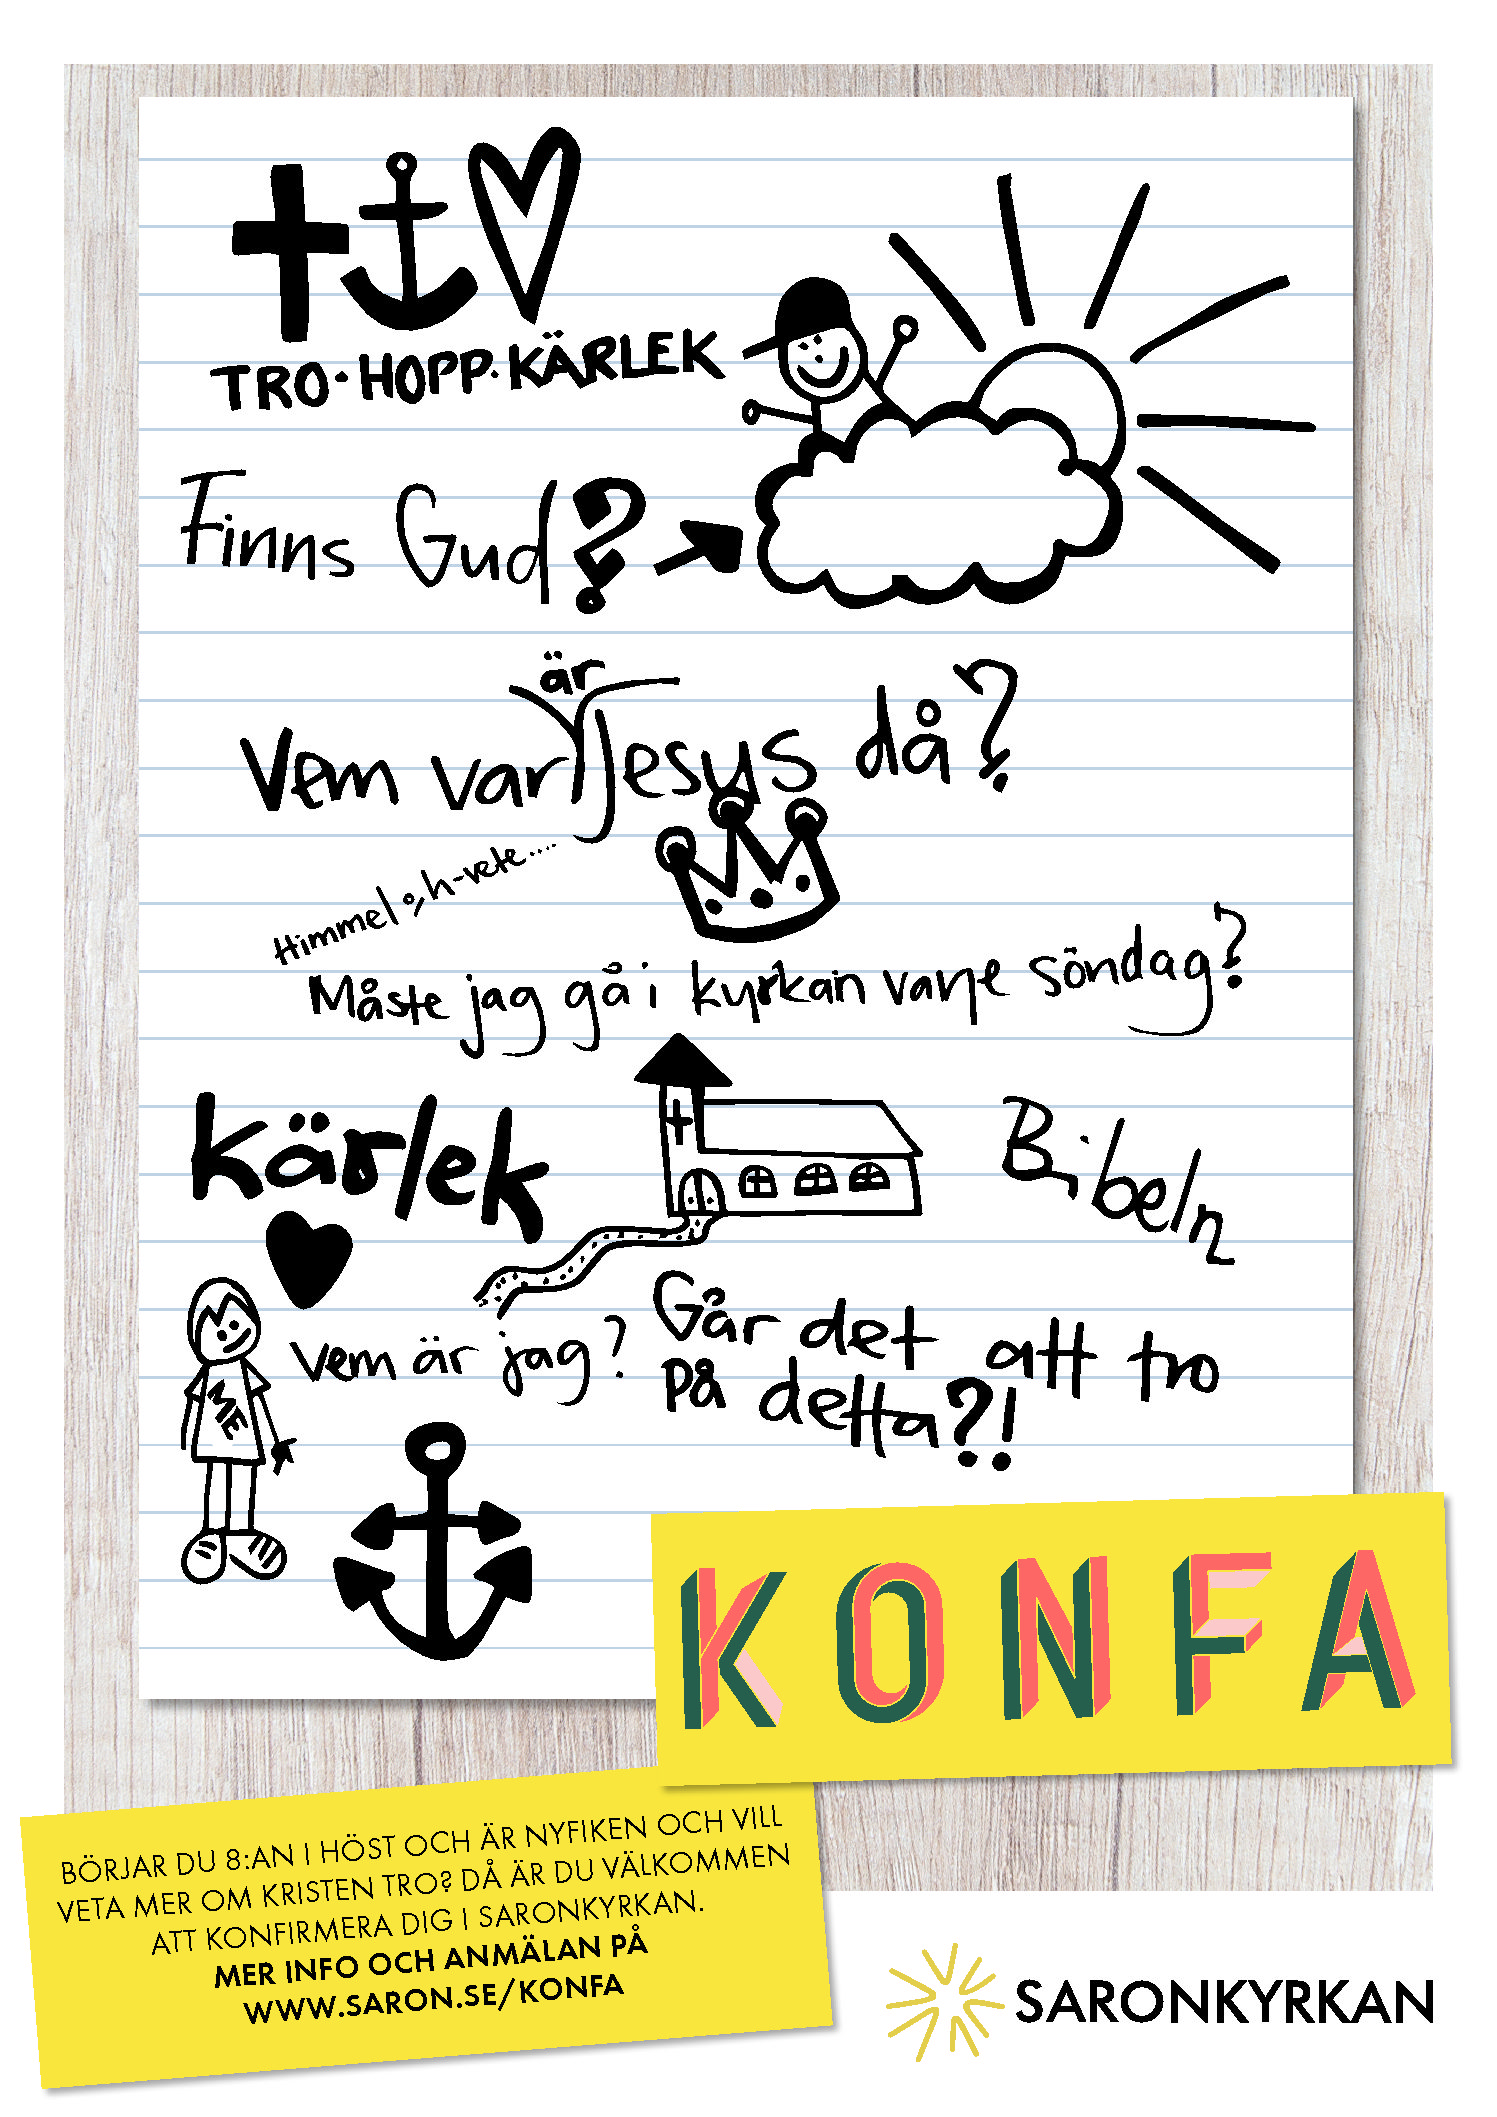 TRO·HOPP·KÄRLEK
Finns Gud?
är
Vem var Jesus då?
Himmel o, h-vete....
Måste jag gå i kyrkan varje söndag?
kärlek
Bibeln
Vem är jag?
Går det att tro
på detta?!
ME
KONFA
BÖRJAR DU 8:AN I HÖST OCH ÄR NYFIKEN OCH VILL
VETA MER OM KRISTEN TRO? DÅ ÄR DU VÄLKOMMEN
ATT KONFIRMERA DIG I SARONKYRKAN.
MER INFO OCH ANMÄLAN PÅ
WWW.SARON.SE/KONFA
SARONKYRKAN